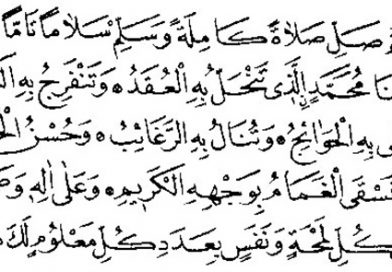 صَلِّ صَلَاةً كَامِلَةً وَسَلِّمْ سَلَامًا تَامًّا
نَا مُحَمَّدٍ الَّذِى تَنْحَلُّ بِهِ الْعُقَدُ ه وَتَنْفَرِجُ بِهِ
بِهِ الْحَوَائِجُ ه وَتُنَالُ بِهِ الرَّغَائِبُ ه وَحُسْنُ
سْتَسْقَى الْغَمَامُ بِوَجْهِهِ الْكَرِيْمِ ه وَعَلَى اٰلِهِ
كُلِّ لَمْحَةٍ وَنَفَسٍ بِعَدَدِ كُلِّ مَعْلُوْمٍ لَكَ